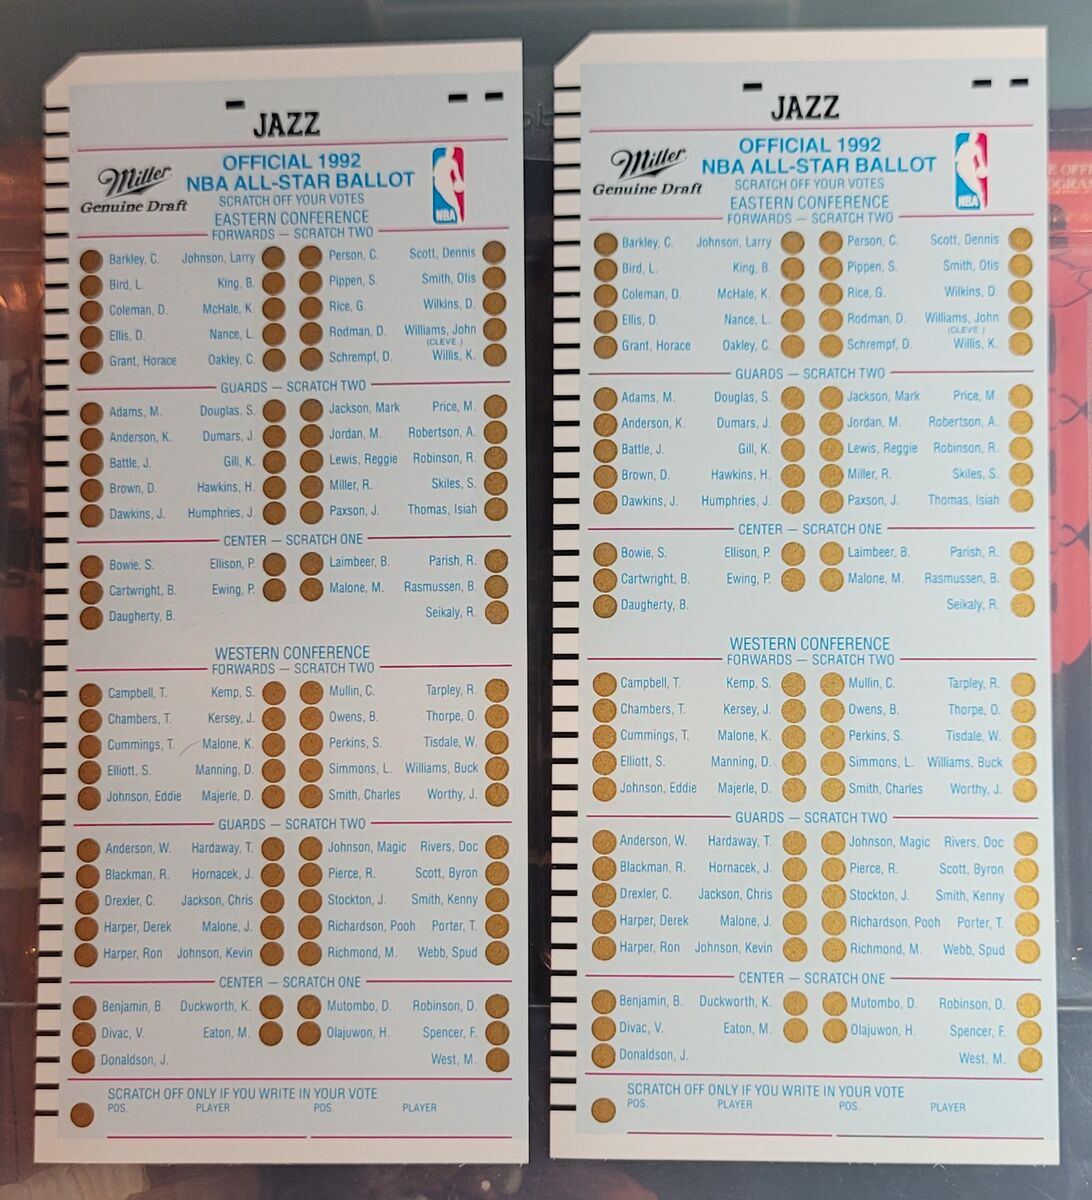 JAZZ
Miller
Genuine Draft
OFFICIAL 1992
NBA ALL-STAR BALLOT
SCRATCH OFF YOUR VOTES
NBA
EASTERN CONFERENCE
FORWARDS — SCRATCH TWO
Barkley, C. Johnson, Larry Person, C. Scott, Dennis
Bird, L. King, B. Pippen, S. Smith, Otis
Coleman, D. McHale, K. Rice, G. Wilkins, D.
Ellis, D. Nance, L. Rodman, D. Williams, John
(CLEVE.)
Grant, Horace Oakley, C. Schrempf, D. Willis, K.
GUARDS — SCRATCH TWO
Adams, M. Douglas, S. Jackson, Mark Price, M.
Anderson, K. Dumars, J. Jordan, M. Robertson, A.
Battle, J. Gill, K. Lewis, Reggie Robinson, R.
Brown, D. Hawkins, H. Miller, R. Skiles, S.
Dawkins, J. Humphries, J. Paxson, J. Thomas, Isiah
CENTER — SCRATCH ONE
Bowie, S. Ellison, P. Laimbeer, B. Parish, R.
Cartwright, B. Ewing, P. Malone, M. Rasmussen, B.
Daugherty, B. Seikaly, R.
WESTERN CONFERENCE
FORWARDS — SCRATCH TWO
Campbell, T. Kemp, S. Mullin, C. Tarpley, R.
Chambers, T. Kersey, J. Owens, B. Thorpe, O.
Cummings, T. Malone, K. Perkins, S. Tisdale, W.
Elliott, S. Manning, D. Simmons, L. Williams, Buck
Johnson, Eddie Majerle, D. Smith, Charles Worthy, J.
GUARDS — SCRATCH TWO
Anderson, W. Hardaway, T. Johnson, Magic Rivers, Doc
Blackman, R. Hornacek, J. Pierce, R. Scott, Byron
Drexler, C. Jackson, Chris Stockton, J. Smith, Kenny
Harper, Derek Malone, J. Richardson, Pooh Porter, T.
Harper, Ron Johnson, Kevin Richmond, M. Webb, Spud
CENTER — SCRATCH ONE
Benjamin, B. Duckworth, K. Mutombo, D. Robinson, D.
Divac, V. Eaton, M. Olajuwon, H. Spencer, F.
Donaldson, J. West, M.
SCRATCH OFF ONLY IF YOU WRITE IN YOUR VOTE
POS. PLAYER POS. PLAYER
JAZZ
Miller
Genuine Draft
OFFICIAL 1992
NBA ALL-STAR BALLOT
SCRATCH OFF YOUR VOTES
NBA
EASTERN CONFERENCE
FORWARDS — SCRATCH TWO
Barkley, C. Johnson, Larry Person, C. Scott, Dennis
Bird, L. King, B. Pippen, S. Smith, Otis
Coleman, D. McHale, K. Rice, G. Wilkins, D.
Ellis, D. Nance, L. Rodman, D. Williams, John
(CLEVE.)
Grant, Horace Oakley, C. Schrempf, D. Willis, K.
GUARDS — SCRATCH TWO
Adams, M. Douglas, S. Jackson, Mark Price, M.
Anderson, K. Dumars, J. Jordan, M. Robertson, A.
Battle, J. Gill, K. Lewis, Reggie Robinson, R.
Brown, D. Hawkins, H. Miller, R. Skiles, S.
Dawkins, J. Humphries, J. Paxson, J. Thomas, Isiah
CENTER — SCRATCH ONE
Bowie, S. Ellison, P. Laimbeer, B. Parish, R.
Cartwright, B. Ewing, P. Malone, M. Rasmussen, B.
Daugherty, B. Seikaly, R.
WESTERN CONFERENCE
FORWARDS — SCRATCH TWO
Campbell, T. Kemp, S. Mullin, C. Tarpley, R.
Chambers, T. Kersey, J. Owens, B. Thorpe, O.
Cummings, T. Malone, K. Perkins, S. Tisdale, W.
Elliott, S. Manning, D. Simmons, L. Williams, Buck
Johnson, Eddie Majerle, D. Smith, Charles Worthy, J.
GUARDS — SCRATCH TWO
Anderson, W. Hardaway, T. Johnson, Magic Rivers, Doc
Blackman, R. Hornacek, J. Pierce, R. Scott, Byron
Drexler, C. Jackson, Chris Stockton, J. Smith, Kenny
Harper, Derek Malone, J. Richardson, Pooh Porter, T.
Harper, Ron Johnson, Kevin Richmond, M. Webb, Spud
CENTER — SCRATCH ONE
Benjamin, B. Duckworth, K. Mutombo, D. Robinson, D.
Divac, V. Eaton, M. Olajuwon, H. Spencer, F.
Donaldson, J. West, M.
SCRATCH OFF ONLY IF YOU WRITE IN YOUR VOTE
POS. PLAYER POS. PLAYER